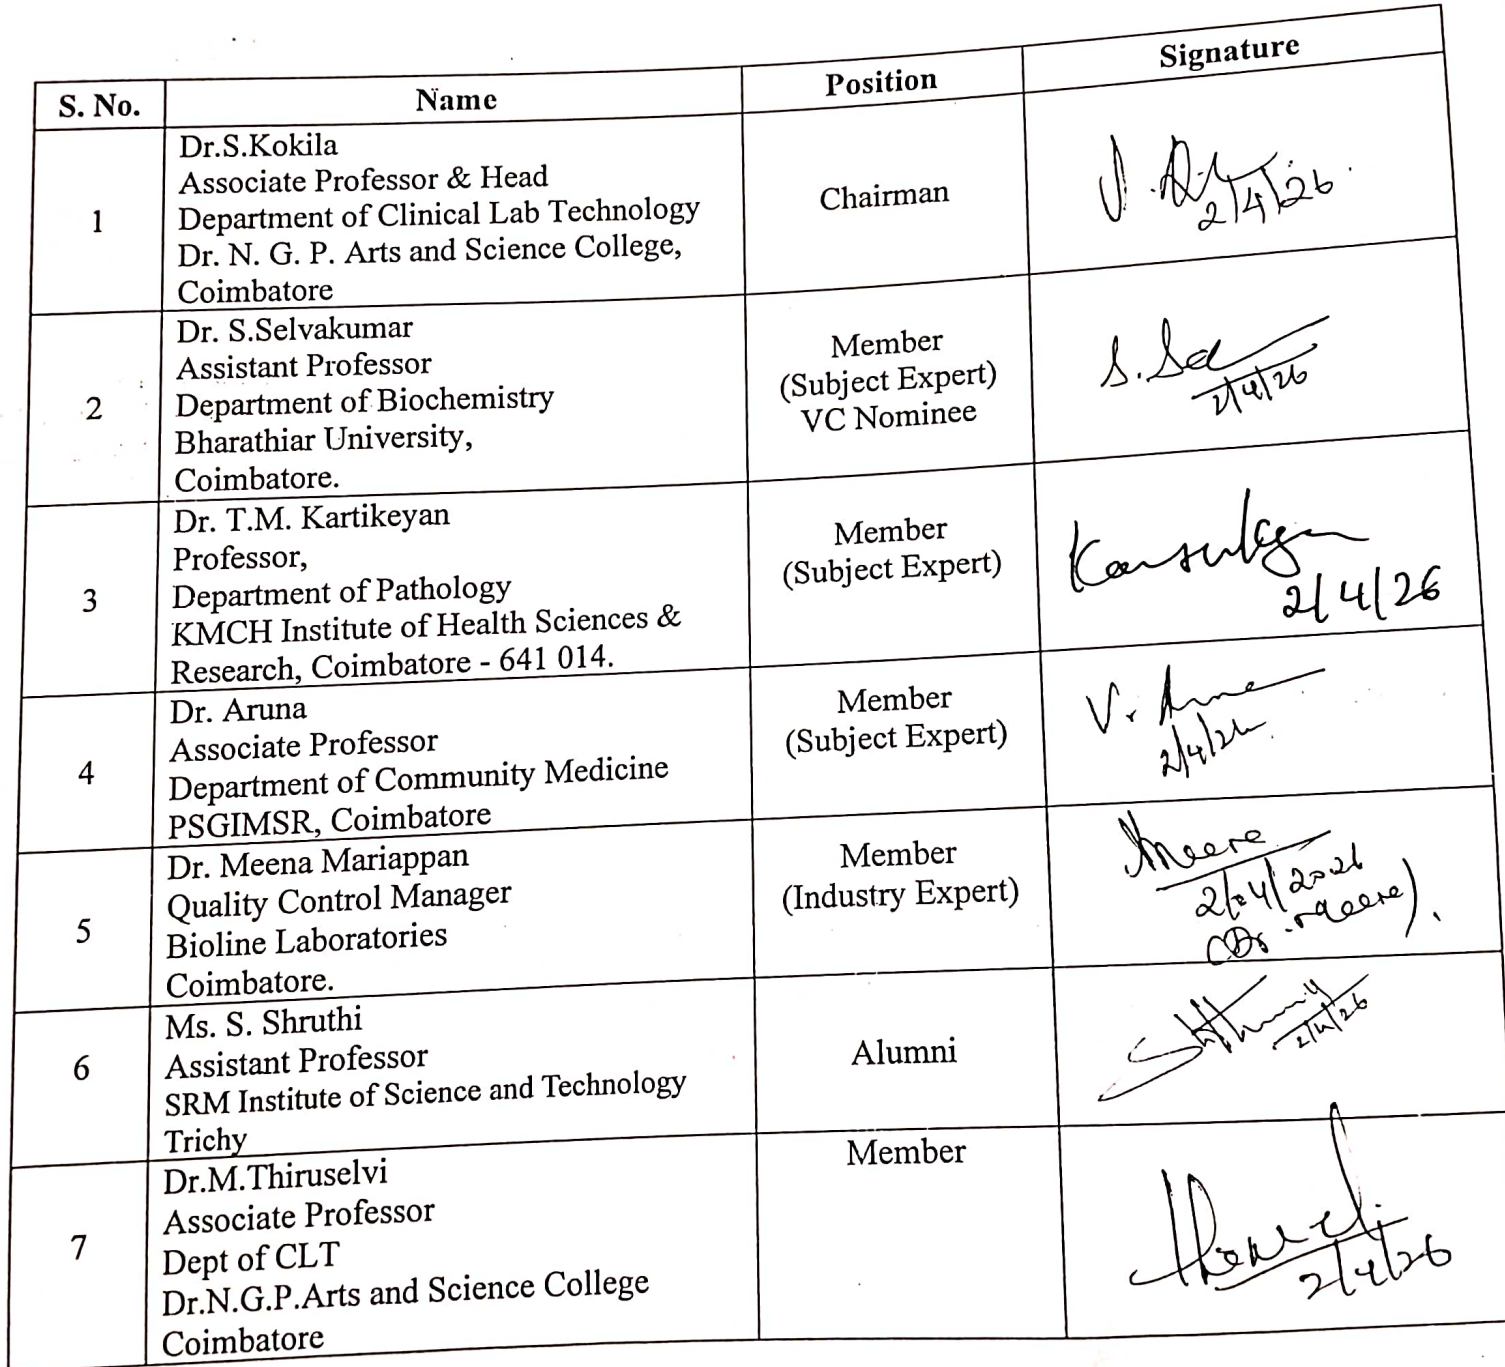 S. No. Name Position Signature
1
Dr.S.Kokila
Associate Professor & Head
Department of Clinical Lab Technology
Dr. N. G. P. Arts and Science College,
Coimbatore
Chairman
2/4/26
2
Dr. S.Selvakumar
Assistant Professor
Department of Biochemistry
Bharathiar University,
Coimbatore.
Member
(Subject Expert)
VC Nominee
S. Sel
2/4/26
3
Dr. T.M. Kartikeyan
Professor,
Department of Pathology
KMCH Institute of Health Sciences &
Research, Coimbatore - 641 014.
Member
(Subject Expert)
2/4/26
4
Dr. Aruna
Associate Professor
Department of Community Medicine
PSGIMSR, Coimbatore
Member
(Subject Expert)
2/4/26
5
Dr. Meena Mariappan
Quality Control Manager
Bioline Laboratories
Coimbatore.
Member
(Industry Expert)
6
Ms. S. Shruthi
Assistant Professor
SRM Institute of Science and Technology
Trichy
Alumni
2/4/26
7
Dr.M.Thiruselvi
Associate Professor
Dept of CLT
Dr.N.G.P.Arts and Science College
Coimbatore
Member
2/4/26